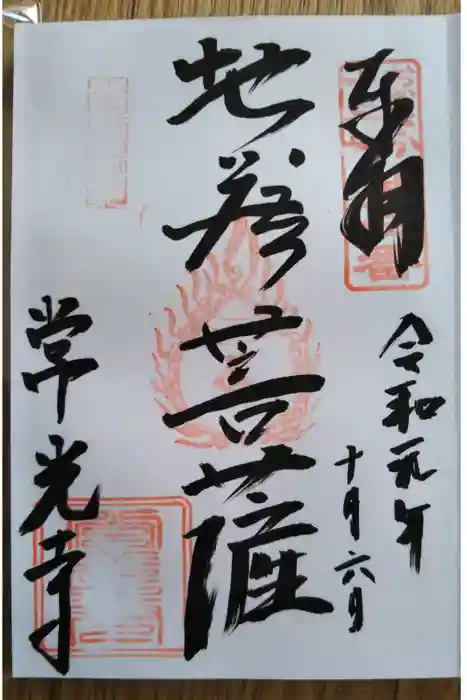 奉拝
令和元年
十月六日
地蔵菩薩
常光寺